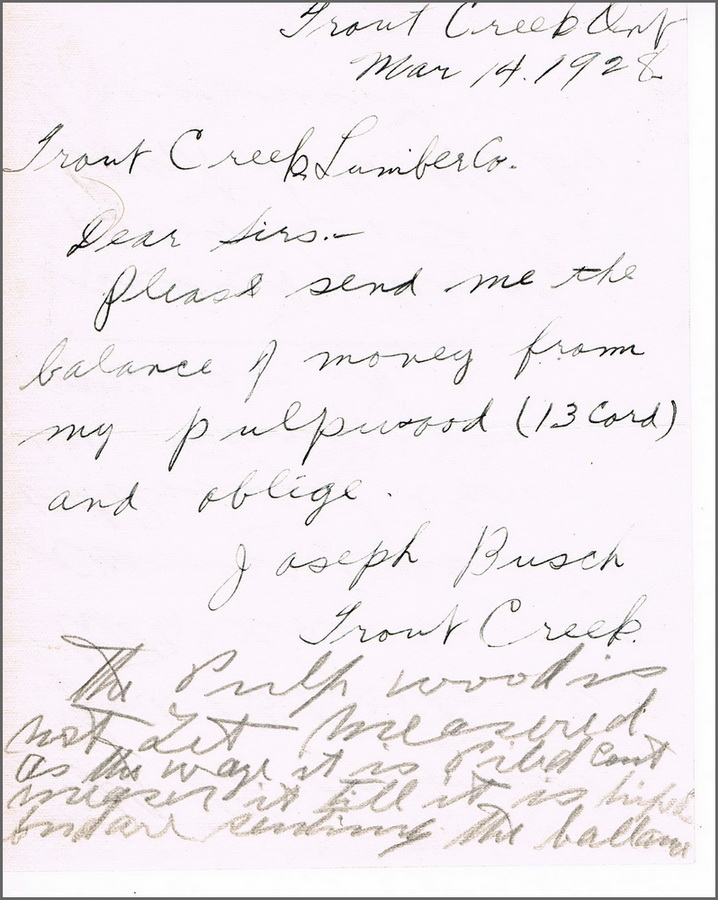 Trout Creek Ont
Mar 14. 1928
Trout Creek Lumber Co.
Dear Sirs.-
Please send me the
balance of money from
my pulpwood (13 Cord)
and oblige.
Joseph Busch
Trout Creek.
The Pulp wood is
not Yet measured
as the waye it is Piled cant
measer it till it is
sending the ballanc